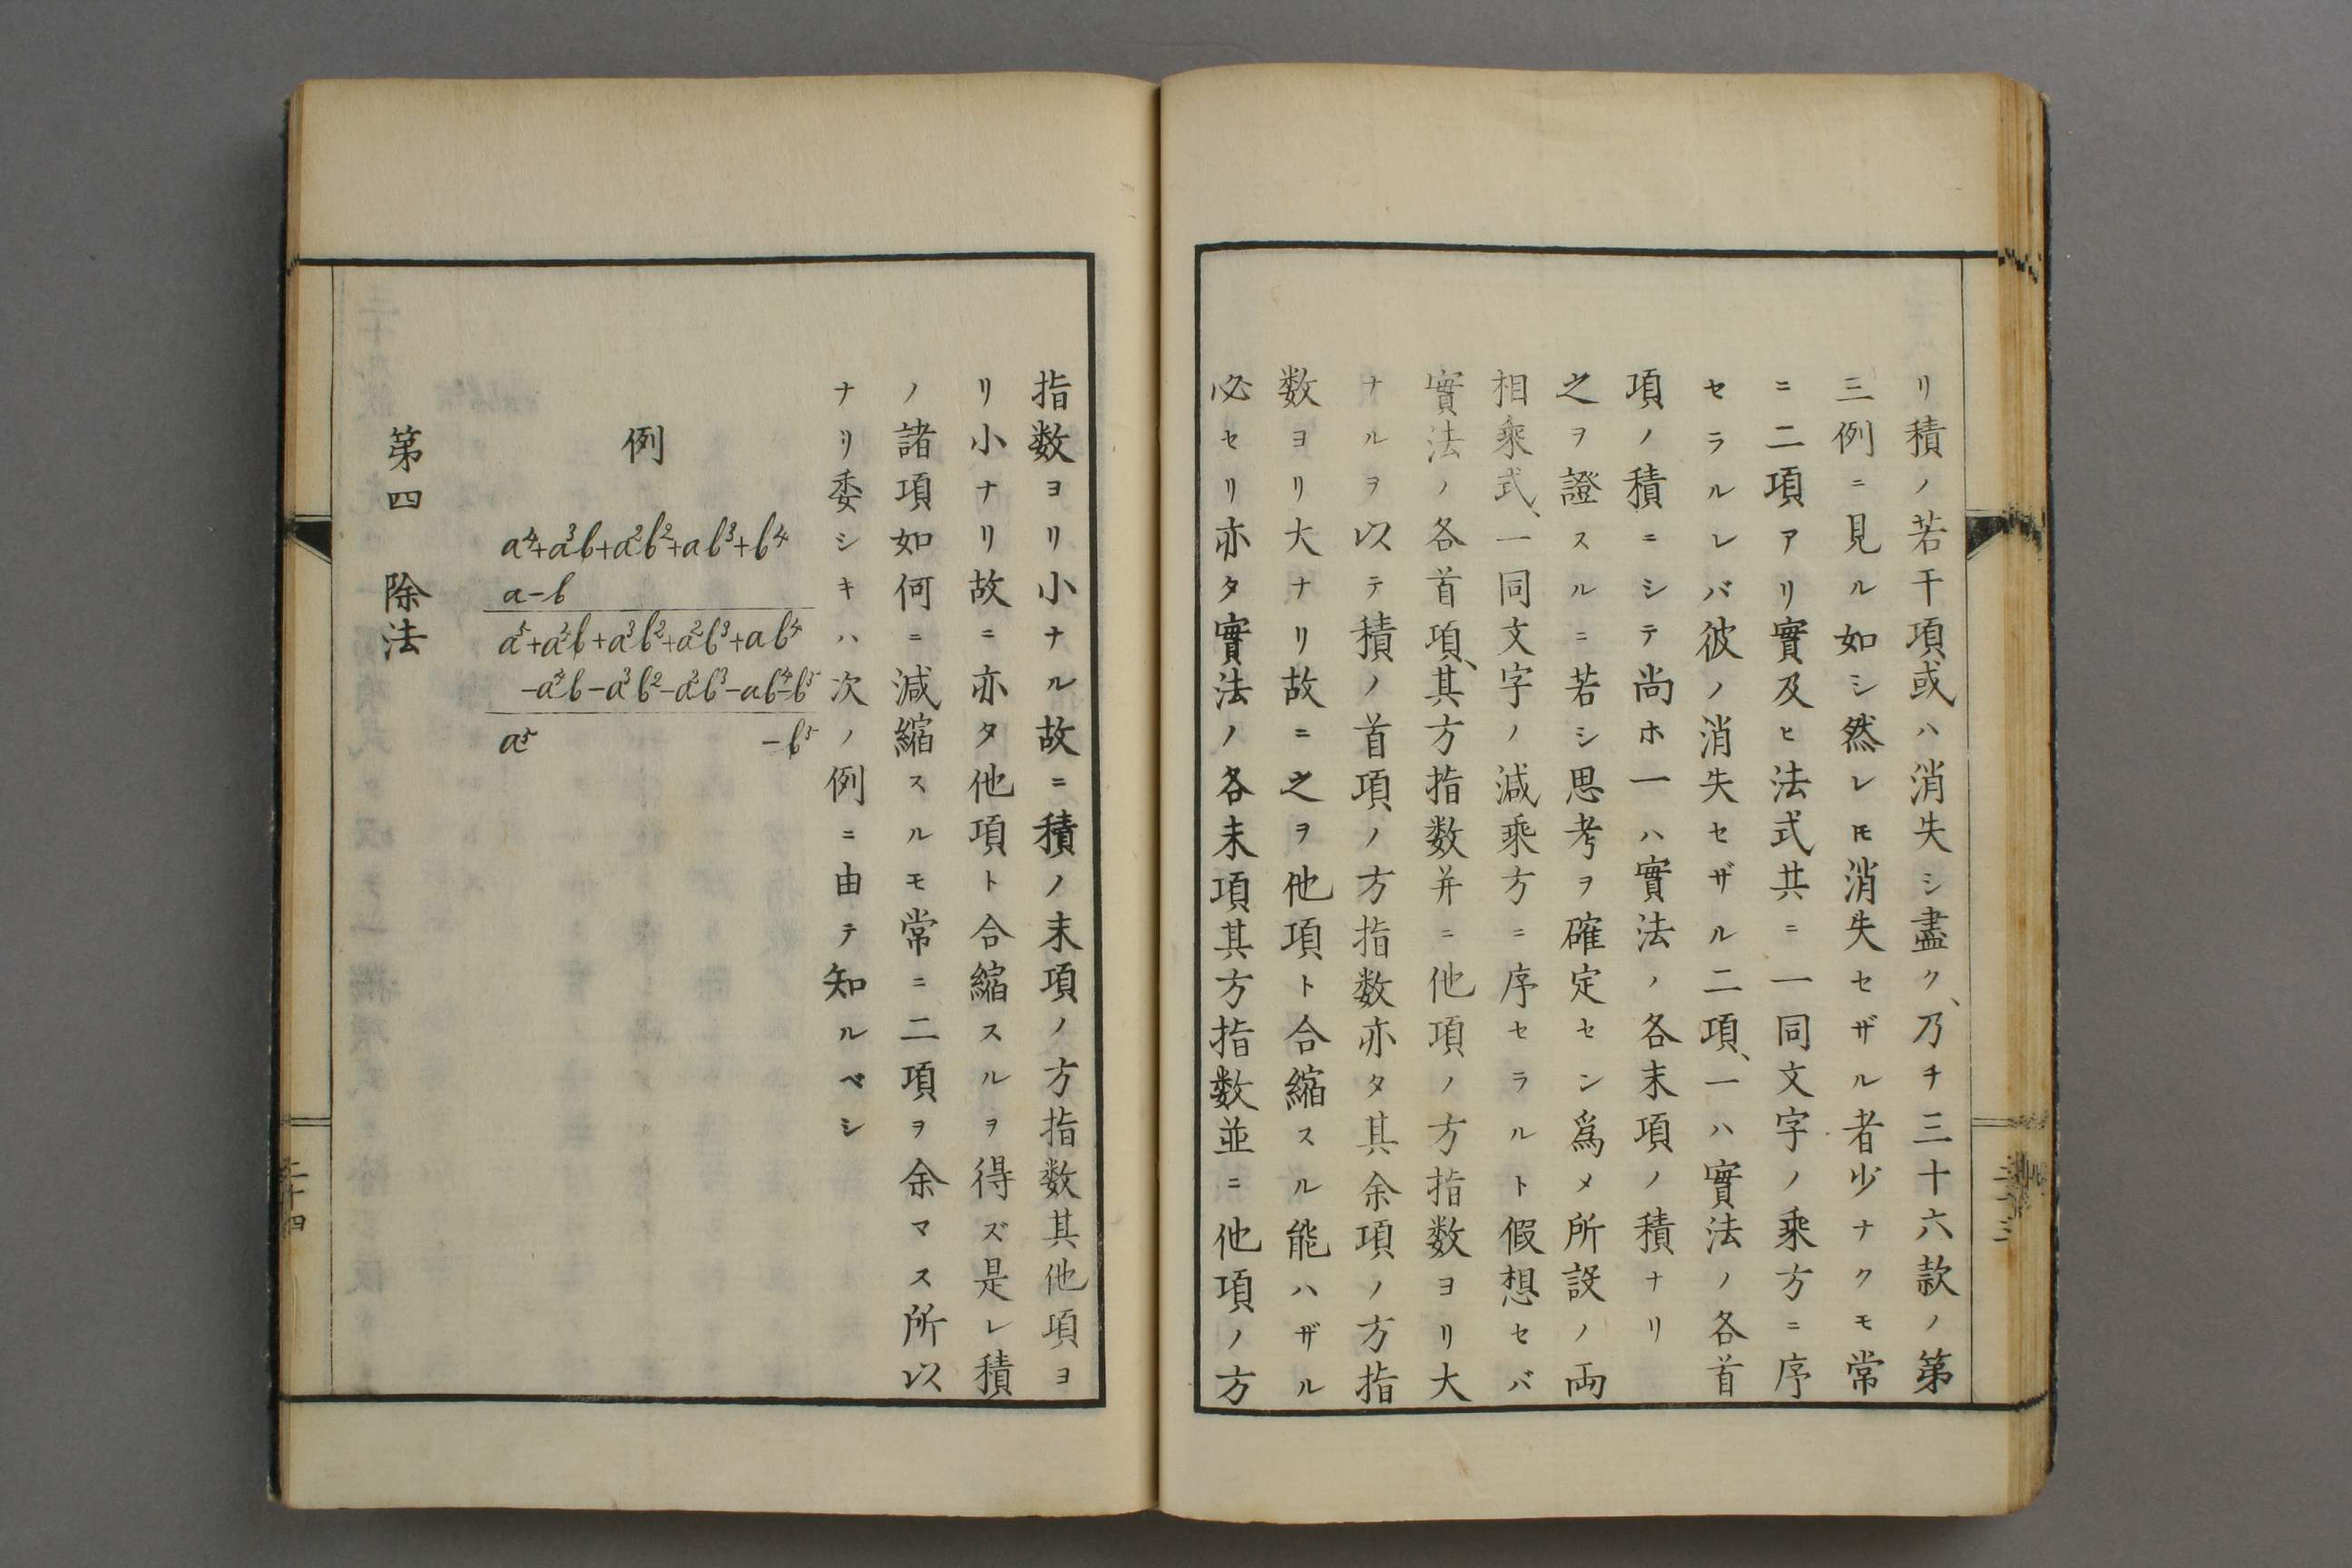 リ積ノ若干項或ハ消失シ盡ク、乃チ三十六款ノ第
三例ニ見ル如シ然レ𪜈消失セザル者少ナクモ常
ニ二項アリ實及ヒ法式共ニ一同文字ノ乘方ニ序
セラルレバ彼ノ消失セザル二項、一ハ實法ノ各首
項ノ積ニシテ尚ホ一ハ實法ノ各末項ノ積ナリ
之ヲ證スルニ若シ思考ヲ確定セン爲メ所設ノ両
相乘式、一同文字ノ減乘方ニ序セラルト假想セバ
實法ノ各首項、其方指数并ニ他項ノ方指数ヨリ大
ナルヲ以テ積ノ首項ノ方指数亦タ其余項ノ方指
数ヨリ大ナリ故ニ之ヲ他項ト合縮スル能ハザル
必セリ亦タ實法ノ各末項其方指数並ニ他項ノ方
指数ヨリ小ナル故ニ積ノ末項ノ方指数其他項ヨ
リ小ナリ故ニ亦タ他項ト合縮スルヲ得ズ是レ積
ノ諸項如何ニ減縮スルモ常ニ二項ヲ余マス所以
ナリ委シキハ次ノ例ニ由テ知ルベシ
例
a⁴+a³b+a²b²+ab³+b⁴
a-b
a⁵+a⁴b+a³b²+a²b³+ab⁴
-a⁴b-a³b²-a²b³-ab⁴-b⁵
a⁵ -b⁵
第四 除法
二十四